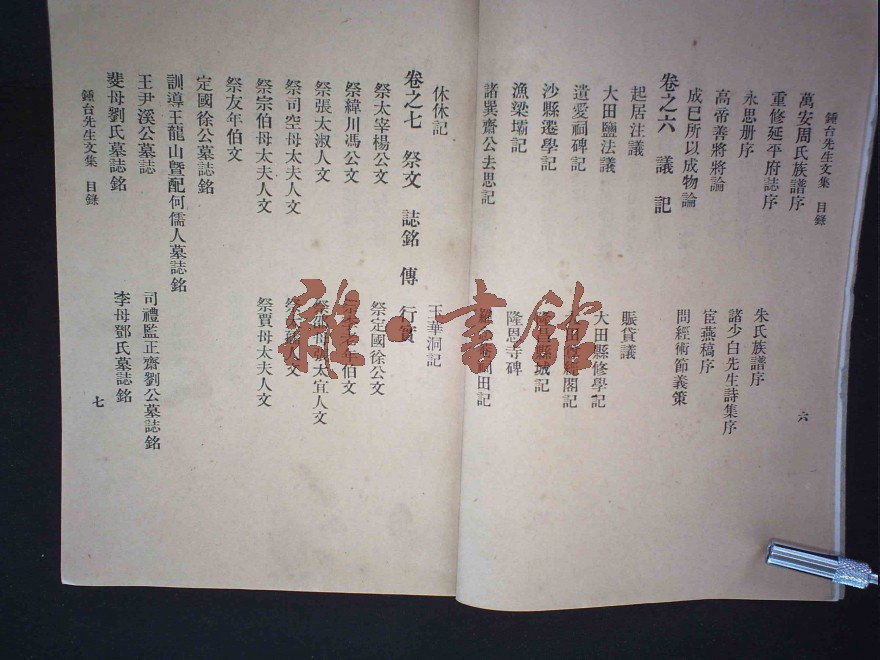 鍾台先生文集 目錄
六
萬安周氏族譜序
朱氏族譜序
重修延平府誌序
諸少白先生詩集序
永思册序
宦燕稿序
高帝善將將論
問經術節義策
成已所以成物論
卷之六 議 記
起居注議
賑貸議
大田鹽法議
大田縣修學記
遺愛祠碑記
閣記
沙縣遷學記
縣城記
漁梁壩記
隆恩寺碑
諸巽齋公去思記
田記
休休記
玉華洞記
卷之七 祭文 誌銘 傳 行實
祭太宰楊公文
祭定國徐公文
祭緯川馮公文
年伯文
祭張太淑人文
太宜人文
祭司空母太夫人文
人文
祭宗伯母太夫人文
祭賈母太夫人文
祭友年伯文
定國徐公墓誌銘
訓導王龍山暨配何儒人墓誌銘
王尹溪公墓誌
司禮監正齋劉公墓誌銘
斐母劉氏墓誌銘
李母鄧氏墓誌銘
鍾台先生文集 目錄
七
雜·書館